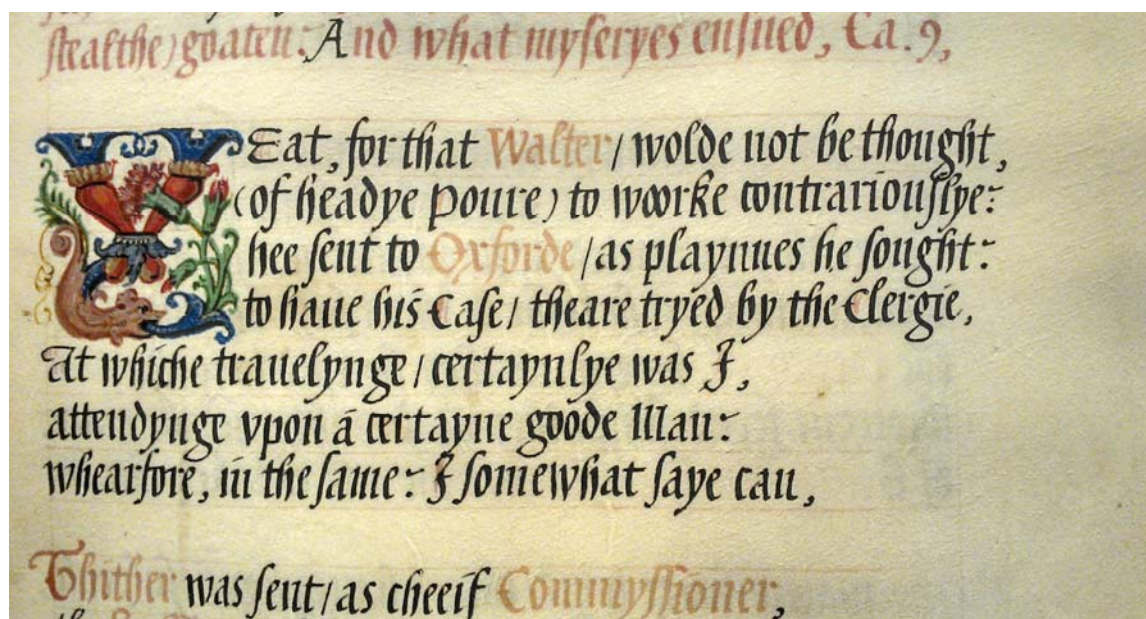 stealthe) goaten: And what myseryes ensued, Ca. 9,
YEat, for that Walter / wolde not be thought,
(of headye poure) to woorke contrariouslye:
hee sent to Oxforde / as playnnes he sought:
to haue his Case / theare tryed by the Clergie,
At whiche trauelynge / certaynlye was I,
attendynge vpon a certayne goode Man:
whearfore, in the same: I somewhat saye can,
Thither was sent / as cheeif Commyssioner,